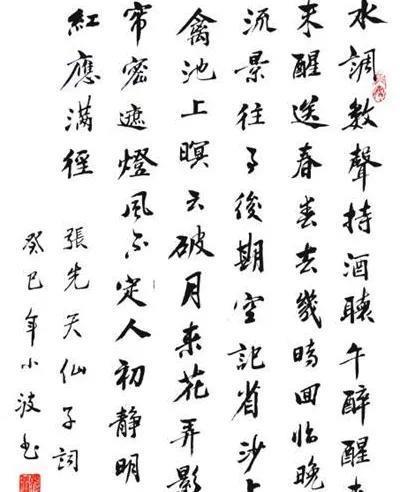 水調數聲持酒聽午醉醒来
未醒送春春去幾時回臨晚
流景往事後期空記省沙上
禽池上暝云破月来花弄影
帘密遮燈風不定人初静明
紅應滿徑
張先天仙子詞
癸巳年小波书